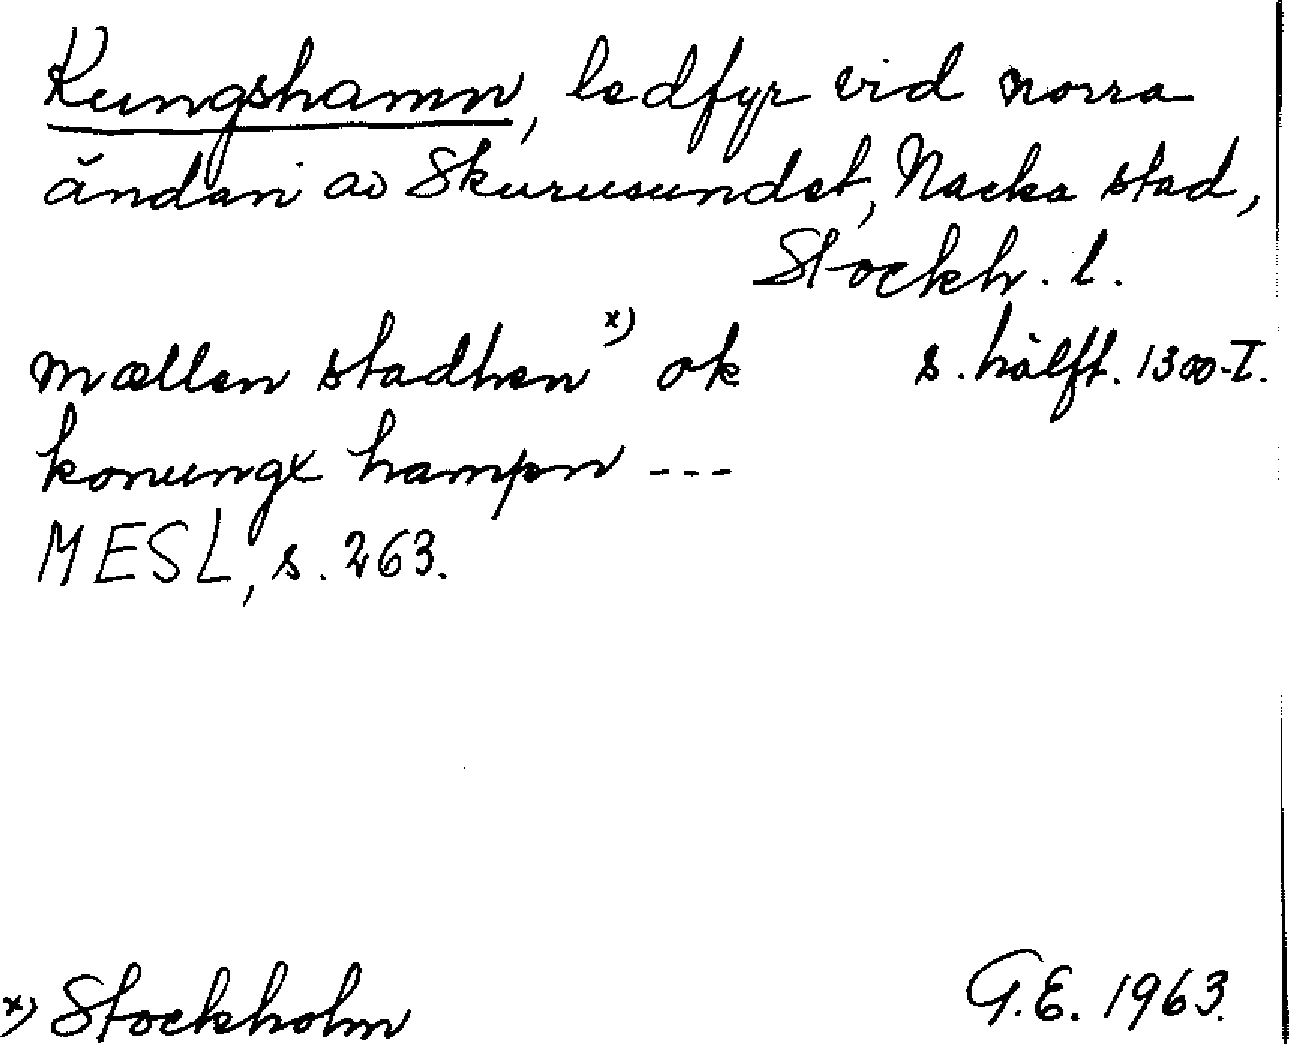 Kungshamn, ledfyr vid norra
ändan av Skurusundet, Nacka stad,
Stockh. l.
mællen stadhen x) ok s. hälft. 1300-T.
konungx hampn ---
MESL, s. 263.
x) Stockholm G.E. 1963.